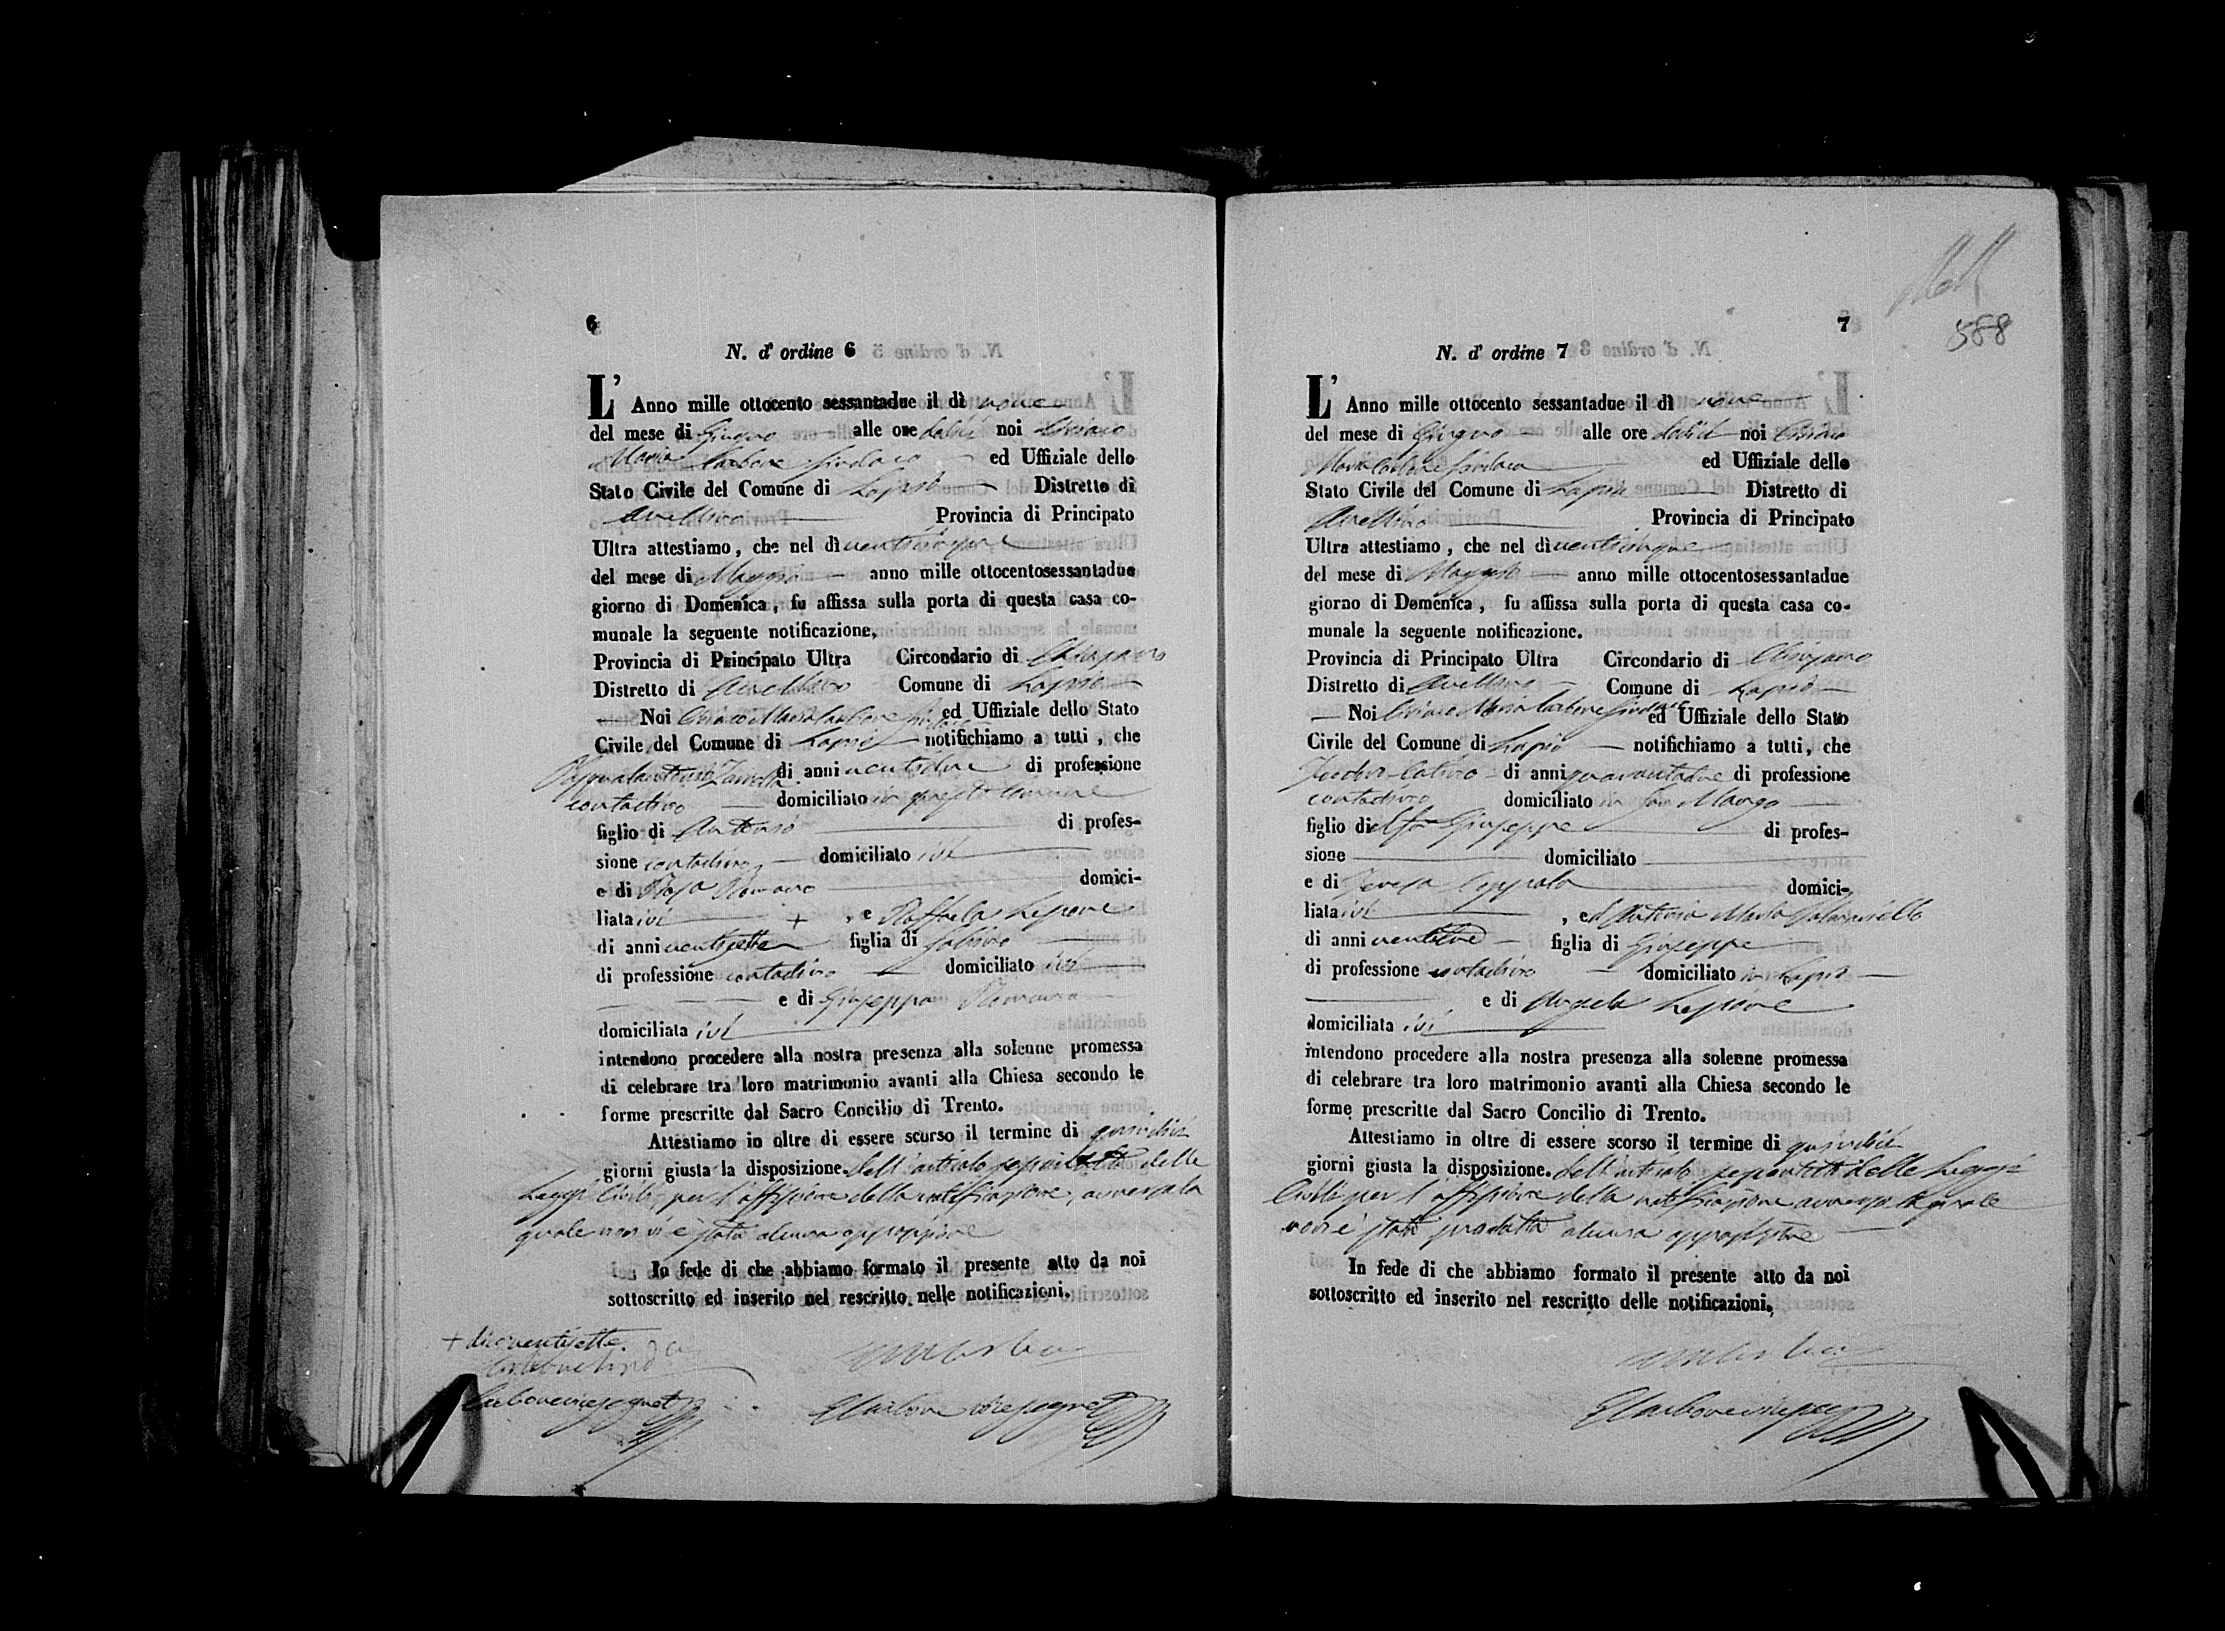 6
N. d' ordine 6
L' Anno mille ottocento sessantadue il dì nove
del mese di Giugno alle ore dodici noi Ciriaco
Maria Carbone Sindaco ed Uffiziale dello
Stato Civile del Comune di Lapio Distretto di
Avellino Provincia di Principato
Ultra attestiamo, che nel dì venticinque
del mese di Maggio anno mille ottocentosessantadue
giorno di Domenica, fu affissa sulla porta di questa casa co-
munale la seguente notificazione,
Provincia di Principato Ultra Circondario di Chiusano
Distretto di Avellino Comune di Lapio
Noi Ciriaco Maria Carbone Sindaco ed Uffiziale dello Stato
Civile del Comune di Lapio notifichiamo a tutti, che
Pasqualantonio di anni ventidue di professione
contadino domiciliato in questo Comune
figlio di Antonio di profes-
sione contadino domiciliato ivi
e di Rosa Romano domici-
liata ivi + , e Raffaela Lepore
di anni ventisette figlia di Sabino
di professione contadino domiciliato ivi
e di Giuseppa Romano
domiciliata ivi
intendono procedere alla nostra presenza alla solenne promessa
di celebrare tra loro matrimonio avanti alla Chiesa secondo le
forme prescritte dal Sacro Concilio di Trento.
Attestiamo in oltre di essere scorso il termine di quindici
giorni giusta la disposizione. dell'articolo delle
Leggi Civili, per l'affissione della notificazione, avverso la
quale non vi è stata alcuna opposizione
In fede di che abbiamo formato il presente atto da noi
sottoscritto ed inserito nel rescritto nelle notificazioni.
+ dico ventisette.
Carbone
Carbone
7
588
N. d' ordine 7
L' Anno mille ottocento sessantadue il dì nove
del mese di Giugno alle ore dodici noi Ciriaco
Maria Carbone Sindaco ed Uffiziale dello
Stato Civile del Comune di Lapio Distretto di
Avellino Provincia di Principato
Ultra attestiamo, che nel dì venticinque
del mese di Maggio anno mille ottocentosessantadue
giorno di Domenica, fu affissa sulla porta di questa casa co-
munale la seguente notificazione.
Provincia di Principato Ultra Circondario di Chiusano
Distretto di Avellino Comune di Lapio
Noi Ciriaco Maria Carbone Sindaco ed Uffiziale dello Stato
Civile del Comune di Lapio notifichiamo a tutti, che
di anni quarantadue di professione
contadino domiciliato in San Mango
figlio di Giuseppe di profes-
sione domiciliato
e di Teresa Coppola domici-
liata ivi , ed Antonia Maria
di anni figlia di Giuseppe
di professione contadino domiciliato in Lapio
e di Angela Lepore
domiciliata ivi
intendono procedere alla nostra presenza alla solenne promessa
di celebrare tra loro matrimonio avanti alla Chiesa secondo le
forme prescritte dal Sacro Concilio di Trento.
Attestiamo in oltre di essere scorso il termine di quindici
giorni giusta la disposizione. dell'articolo delle Leggi
Civili per l'affissione della notificazione avverso la quale
non è stata prodotta alcuna opposizione
In fede di che abbiamo formato il presente atto da noi
sottoscritto ed inserito nel rescritto delle notificazioni.
Carbone